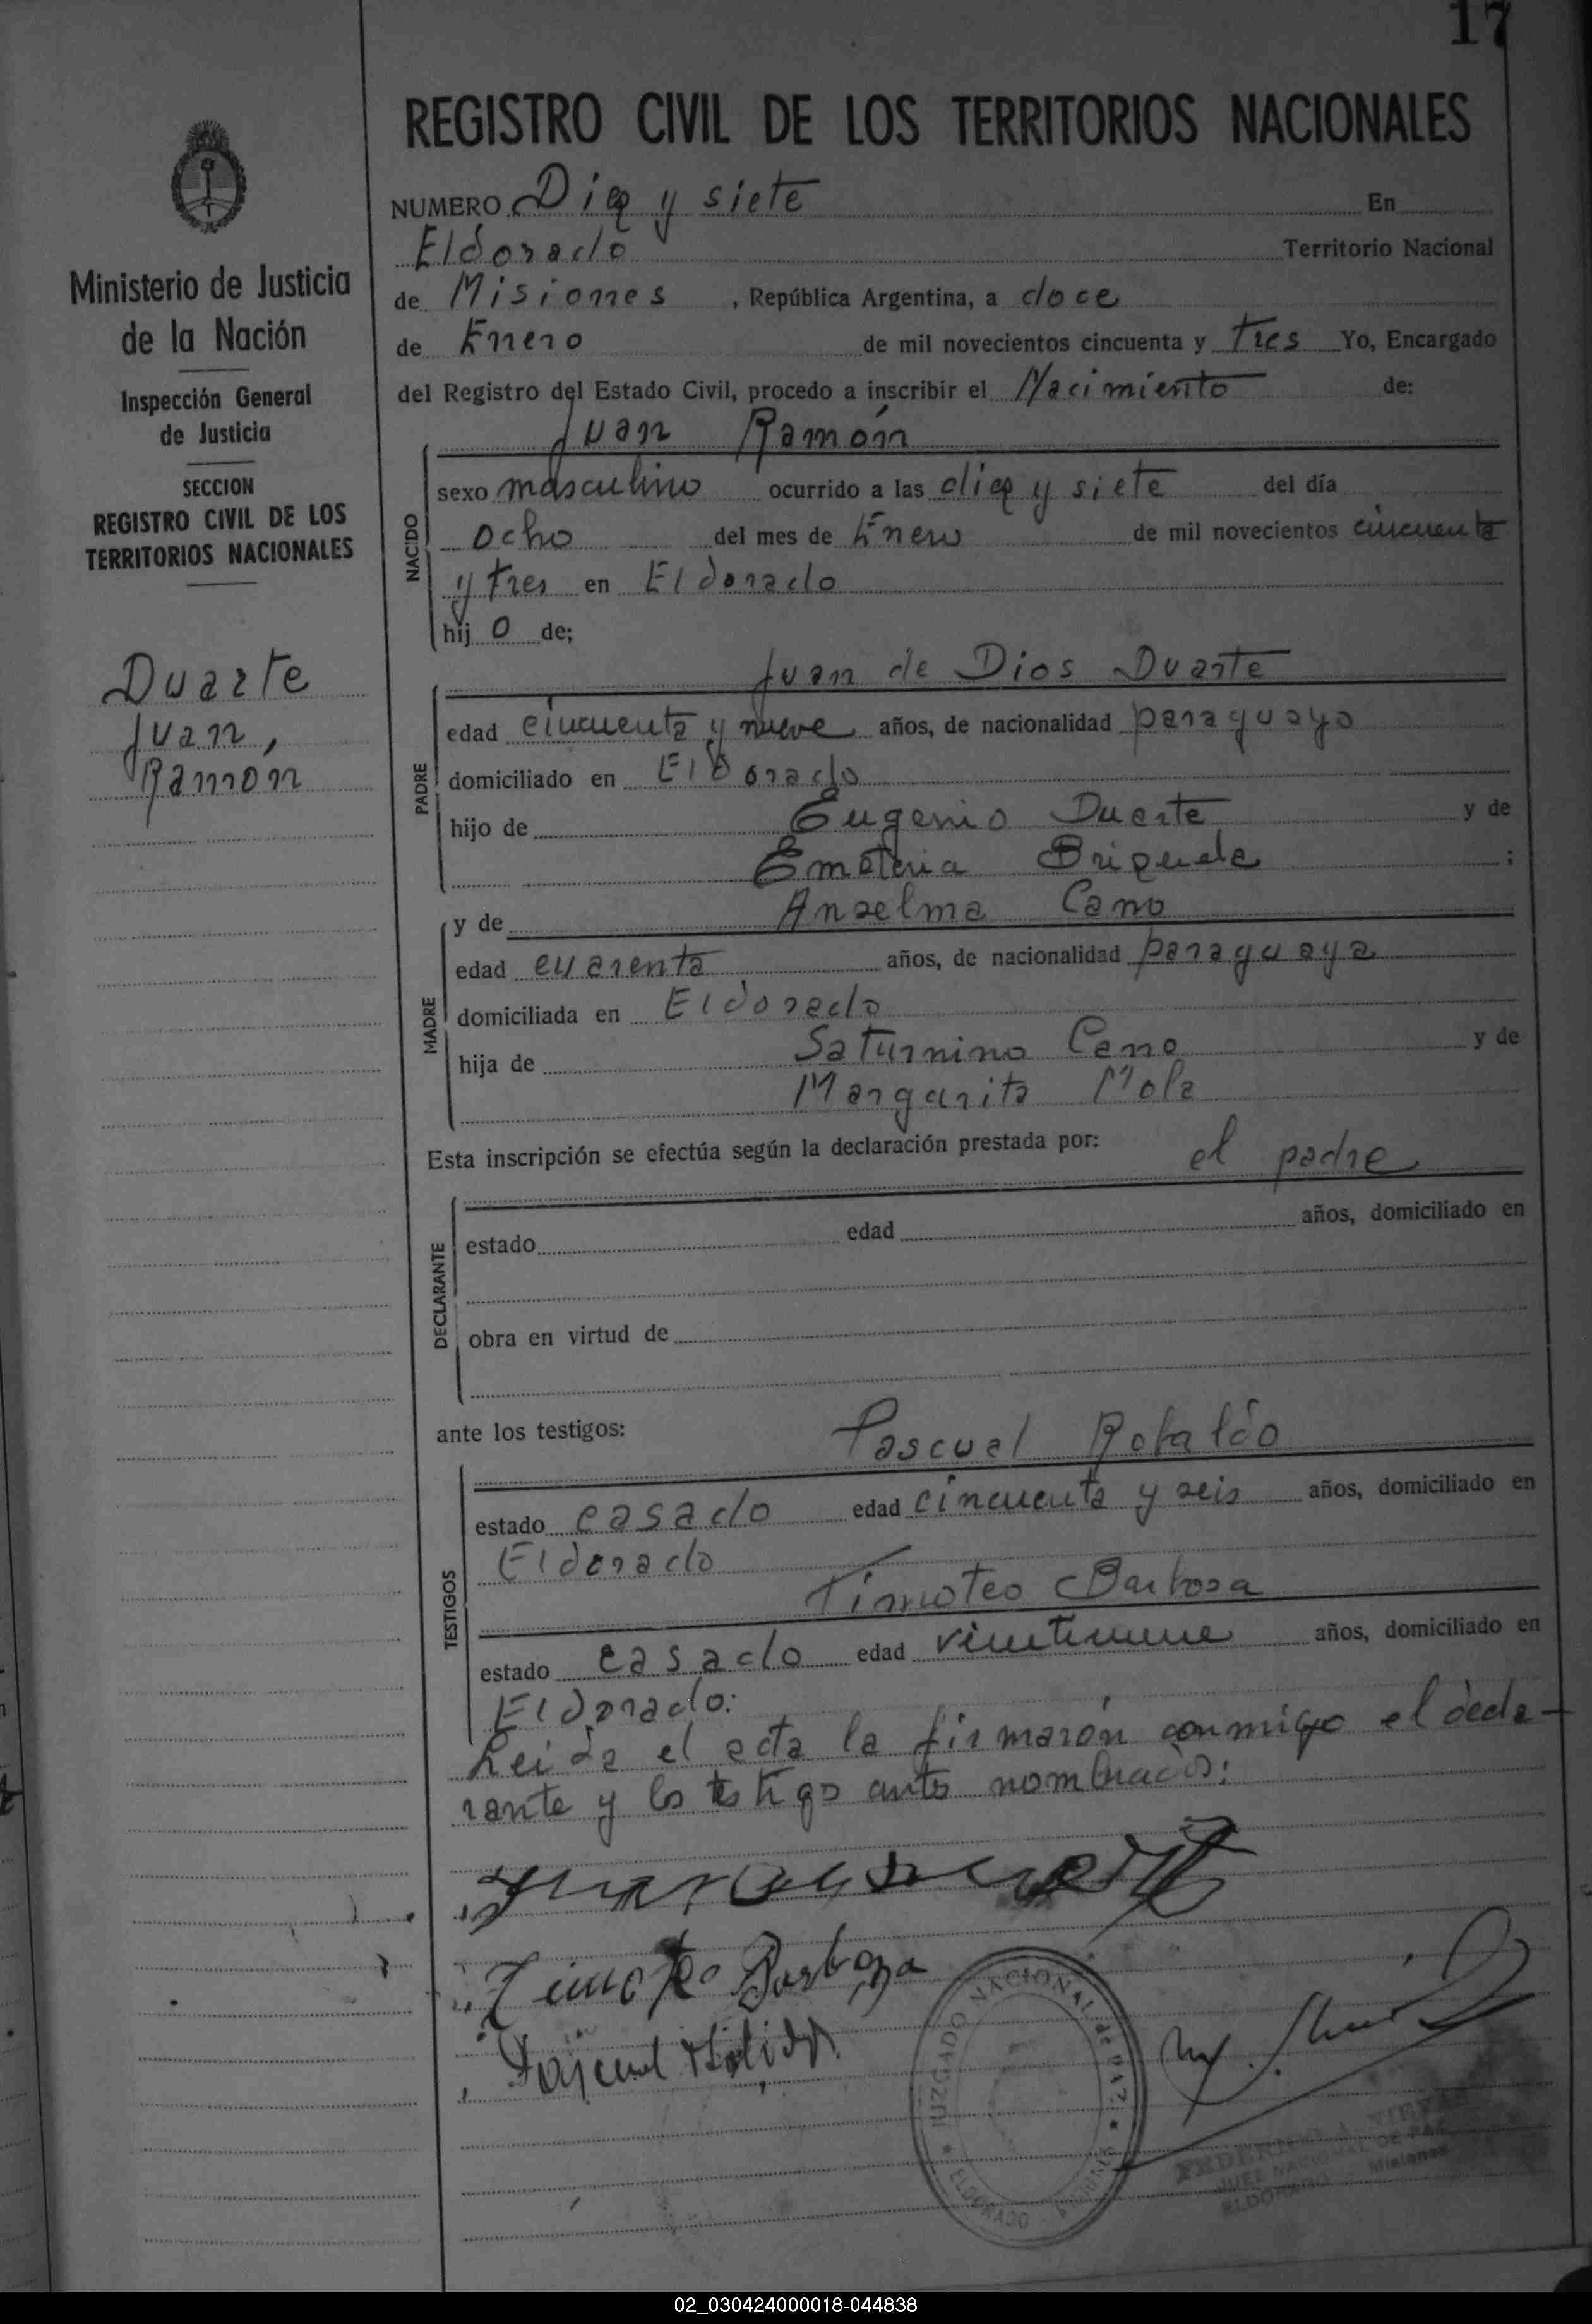 17
REGISTRO CIVIL DE LOS TERRITORIOS NACIONALES
NUMERO Diez y siete En
Eldorado Territorio Nacional
de Misiones , República Argentina, a doce
de Enero de mil novecientos cincuenta y tres Yo, Encargado
del Registro del Estado Civil, procedo a inscribir el Nacimiento de:
Juan Ramón
NACIDO
sexo masculino ocurrido a las diez y siete del día
ocho del mes de Enero de mil novecientos cincuenta
y tres en Eldorado
hij o de;
Juan de Dios Duarte
PADRE
edad cincuenta y nueve años, de nacionalidad paraguayo
domiciliado en Eldorado
hijo de Eugenio Duarte y de
Emeteria ;
MADRE
y de Anselma Cano
edad cuarenta años, de nacionalidad paraguaya
domiciliada en Eldorado
hija de Saturnino Cano y de
Margarita Mola
Esta inscripción se efectúa según la declaración prestada por: el padre
DECLARANTE
estado edad años, domiciliado en
obra en virtud de
ante los testigos: Pascual
TESTIGOS
estado casado edad cincuenta y seis años, domiciliado en
Eldorado
Timoteo Barboza
estado casado edad veintinueve años, domiciliado en
Eldorado:
Leida el acta la firmarón conmigo el decla-
rante y los testigo antes nombrados:
Timoteo Barboza
JUZGADO NACIONAL de PAZ * ELDORADO *
JUEZ NACIONAL DE PAZ
ELDORADO - Misiones
Ministerio de Justicia
de la Nación
Inspección General
de Justicia
SECCION
REGISTRO CIVIL DE LOS
TERRITORIOS NACIONALES
Duarte
Juan,
Ramón
02_030424000018-044838